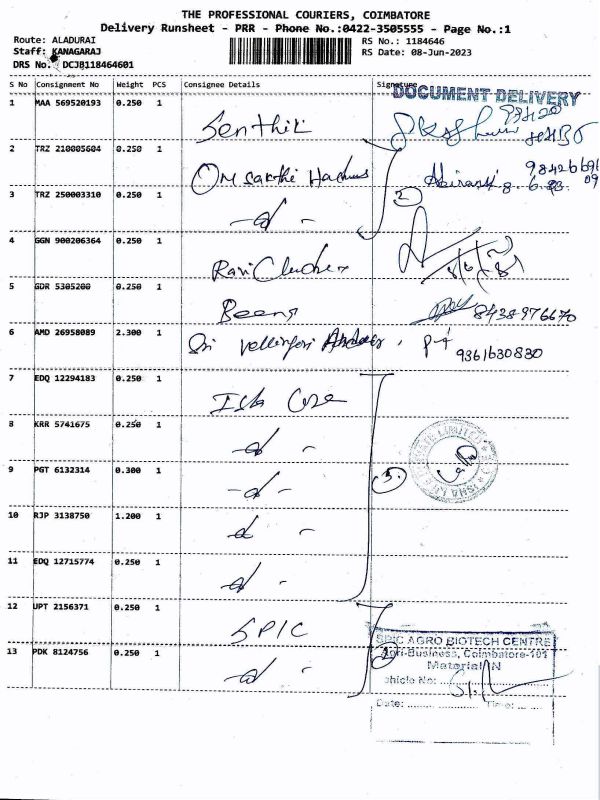 THE PROFESSIONAL COURIERS, COIMBATORE
Delivery Runsheet - PRR - Phone No.:0422-3505555 - Page No.:1
Route: ALADURAI
RS No.: 1184646
Staff: KANAGARAJ
RS Date: 08-Jun-2023
DRS No. DCJ8118464601
S No Consignment No Weight PCS Consignee Details Signature
DOCUMENT DELIVERY
1 MAA 569520193 0.250 1 Senthil
2 TRZ 210005604 0.250 1 Om Sakthi
3 TRZ 250003310 0.250 1 -d- 2
4 GGN 900206364 0.250 1 Ravi
5 GDR 5305200 0.250 1 Beena 8438976670
6 AMD 26958089 2.300 1 Sri 9361630830
7 EDQ 12294183 0.250 1 Isha
8 KRR 5741675 0.250 1 -d-
9 PGT 6132314 0.300 1 -d- 5
10 RJP 3138750 1.200 1 d -
11 EDQ 12715774 0.250 1 -d-
12 UPT 2156371 0.250 1 SPIC
13 PDK 8124756 0.250 1 -d-
SPIC AGRO BIOTECH CENTRE
Agri-Business, Coimbatore-101
Material IN
Vehicle No:
Date: Time: